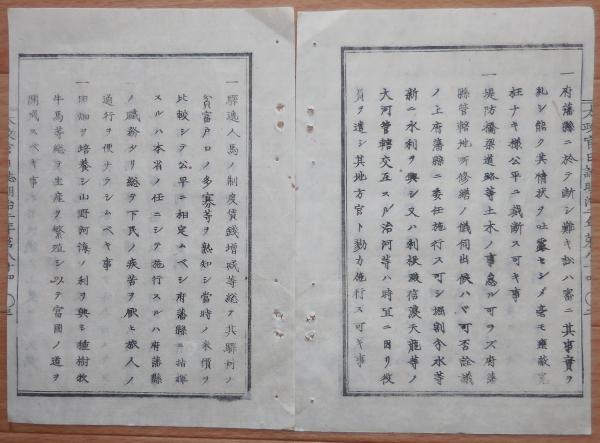 一府藩縣ニ於テ断シ難キ訟ハ審ニ其事實ヲ
糺シ能ク其情状ヲ吐露セシメ毫モ壅蔽冤
枉ナキ様公平ニ裁断ス可キ事
一堤防橋梁道路等土木ノ事忽ル可ラズ府藩
縣管轄地所修繕ノ儀伺出候ハヾ可否詮議
ノ上府藩縣ニ委任施行ス可シ堀割分水等
新ニ水利ヲ興シ又ハ利根澱信濃天龍等ノ
大河管轄交互スル治河等ハ時宜ニ因リ
官ヲ遣シ其地方官ト勠力施行ス可キ事
一驛逓人馬ノ制度賃錢増减等総テ其驛村ノ
貧富戸口ノ多寡等ヲ熟知シ當時ノ米價ヲ
比較シテ公平ニ相定ムベシ府藩縣ニ指揮
スルハ本省ノ任ニシテ施行スルハ府藩縣
ノ職務タリ総テ下民ノ疾苦ヲ厭ヒ旅人ノ
通行ヲ便ナラシムベキ事
一田畑ヲ培養シ山野河海ノ利ヲ興シ種樹牧
牛馬等総テ生産ヲ繁殖シ以テ富國ノ道ヲ
開成スベキ事